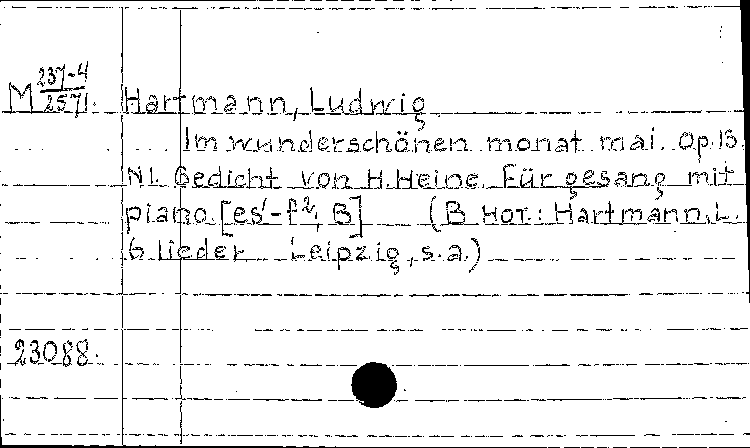 M 237-4
2571. Hartmann, Ludwig
Im wunderschönen monat mai. Op.13.
N1. Gedicht von H.Heine. Für gesang mit
piano. [es¹-f², B] (В нот.: Hartmann, L.
6 lieder Leipzig, s.a.)
23088.